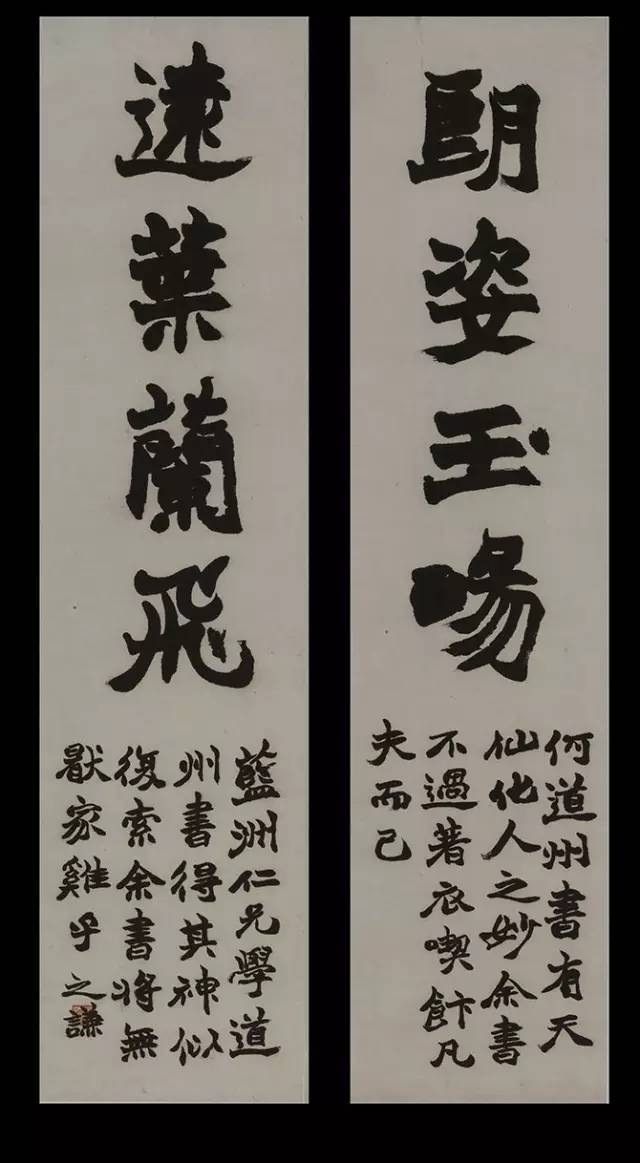 朗姿玉暘
何道州書有天
仙化人之妙余書
不過著衣喫飰凡
夫而已
遠葉蘭飛
藍洲仁兄學道
州書得其神似
復索余書將無
猒家雞乎之謙